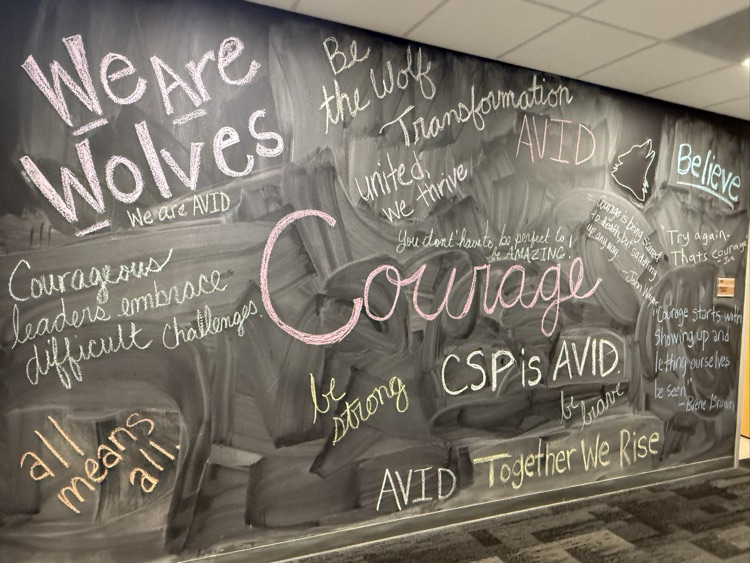 We Are
Wolves
We are AVID
Be
the Wolf
Transformation
AVID
Believe
united,
we thrive
You don't have to be perfect to
be AMAZING!
Courage
Courage is being scared
to death, but saddling
up anyway.
"Try again-
That's courage"
Courageous
leaders embrace
difficult challenges
"Courage starts with
showing up and
letting ourselves
be seen"
-Brene Brown
CSP is AVID.
be
strong
be brave
all
means
all.
AVID
Together We Rise